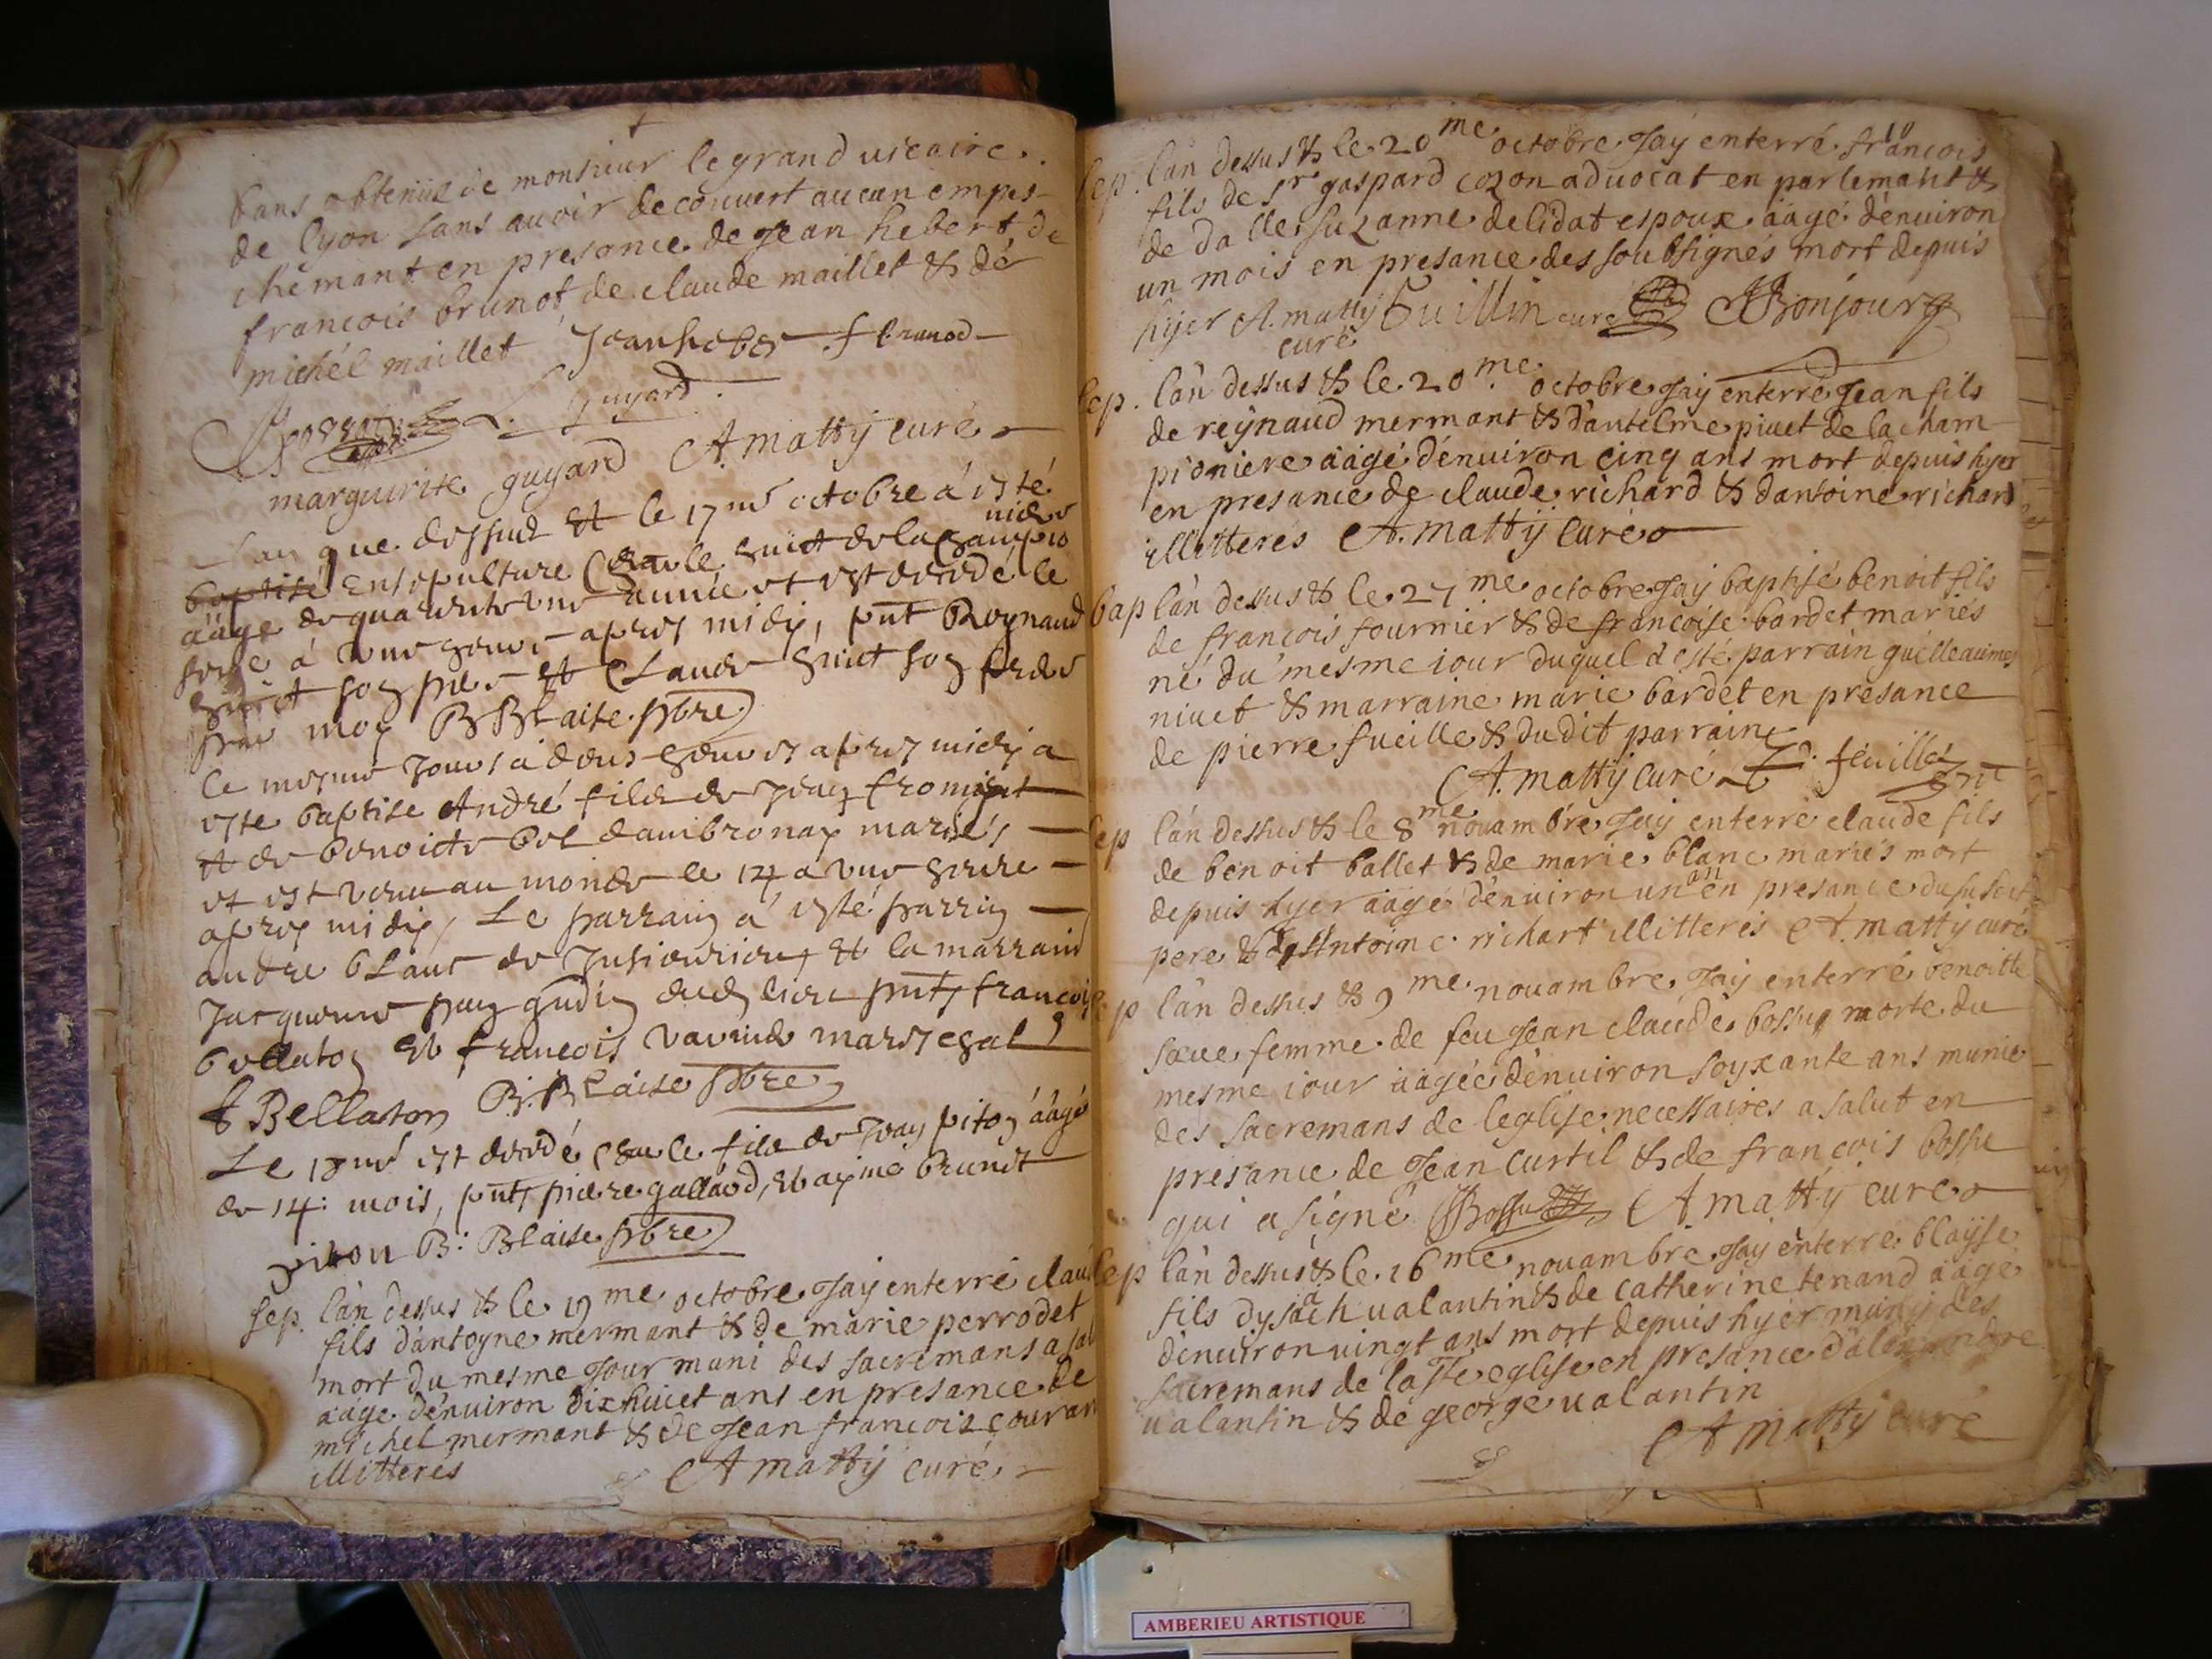 bans obtenus de monsieur le grand vicaire
de lyon sans avoir decouvert aucun empes-
chemant en presance de Jean hebert de
francois brunot, de claude maillet & de
michel maillet Jean hebert f brunod
guyard
marguerite guyard A. matty curé
L'an que dessus et le 17me octobre a esté
nier
baptisé Ensepulture Charle guict de la Champio
aage de quarente une année et est decedé le
à une heure apres midy, pnt Reynaud
guict son pere et Claude guict son frere
par moy B Blaise pbre
le mesme jour a deus heures apres midy a
esté baptise André fils de Jean fromignt
et de benoicte bol dambronay mariés
et est venu au monde le 14 a une heure
apres midy, Le parrain a esté parrin
andre blanc de Jusieurieu et la marraine
Jacqueme dud lieu pnts francois
bellaton et francois mareschal
f Bellaton B. Blaise pbre
Le 18me est decedé Charle fils de Jean piton aagé
de 14: mois, pnts pierre gallavd, et aymé brunet
piton B: Blaise pbre
sep. lan dessus & le 19me octobre Jay enterré claude
fils dantoyne mermant & de marie perrodet
mort du mesme Jour muni des sacremans a sal
aage denuiron dixhuict ans en presance de
michel mermant & de Jean francois couran
illitterés A matty curé
10
sep. lan dessus & le 20me octobre Jay enterré francois
fils de sr gaspard cozon aduocat en parlemant &
de dalle suzanne delidat espoux aagé denuiron
un mois en presance des soubsignés mort depuis
hyer A. matty Guillin curé Bonjour
curé
sep. lan dessus & le 20me octobre Jay enterré Jean fils
de reynaud mermant & dantelme piuet de la cham
pioniere aagé denuiron cinq ans mort depuis hyer
en presance de claude richard & dantoine richard
illitterés A. matty curé
bap lan dessus & le 27me octobre Jay baptisé benoit fils
de francois fournier & de francoise bardet mariés
né du mesme iour duquel a esté parrain guilleaumes
niuet & marraine marie bardet en presance
de pierre fueille & dudit parrain
A. matty curé feuillet
sep lan dessus & le 8me nouambre Jay enterré claude fils
de benoit ballet & de marie blanc mariés mort
depuis hyer aagé denuiron un an en presance du susdit
pere & dAntoine richart illitterés A. matty curé
sep lan dessus & 9me nouambre Jay enterré benoitte
saue femme de feu Jean claude bossu morte du
mesme iour aagée denuiron soyxante ans munie
des sacremans de leglise necessaires a salut en
presance de Jean curtil & de francois bossu
qui a signé Bossu A matty curé
sep lan dessus & le 16me nouambre Jay enterré blayse
fils dysaach ualantin & de catherine tenand aagé
denuiron uingt ans mort depuis hyer muny des
sacremans de la ste eglise en presance dalexandre
ualantin & de george ualantin
A Matty curé
AMBERIEU ARTISTIQUE